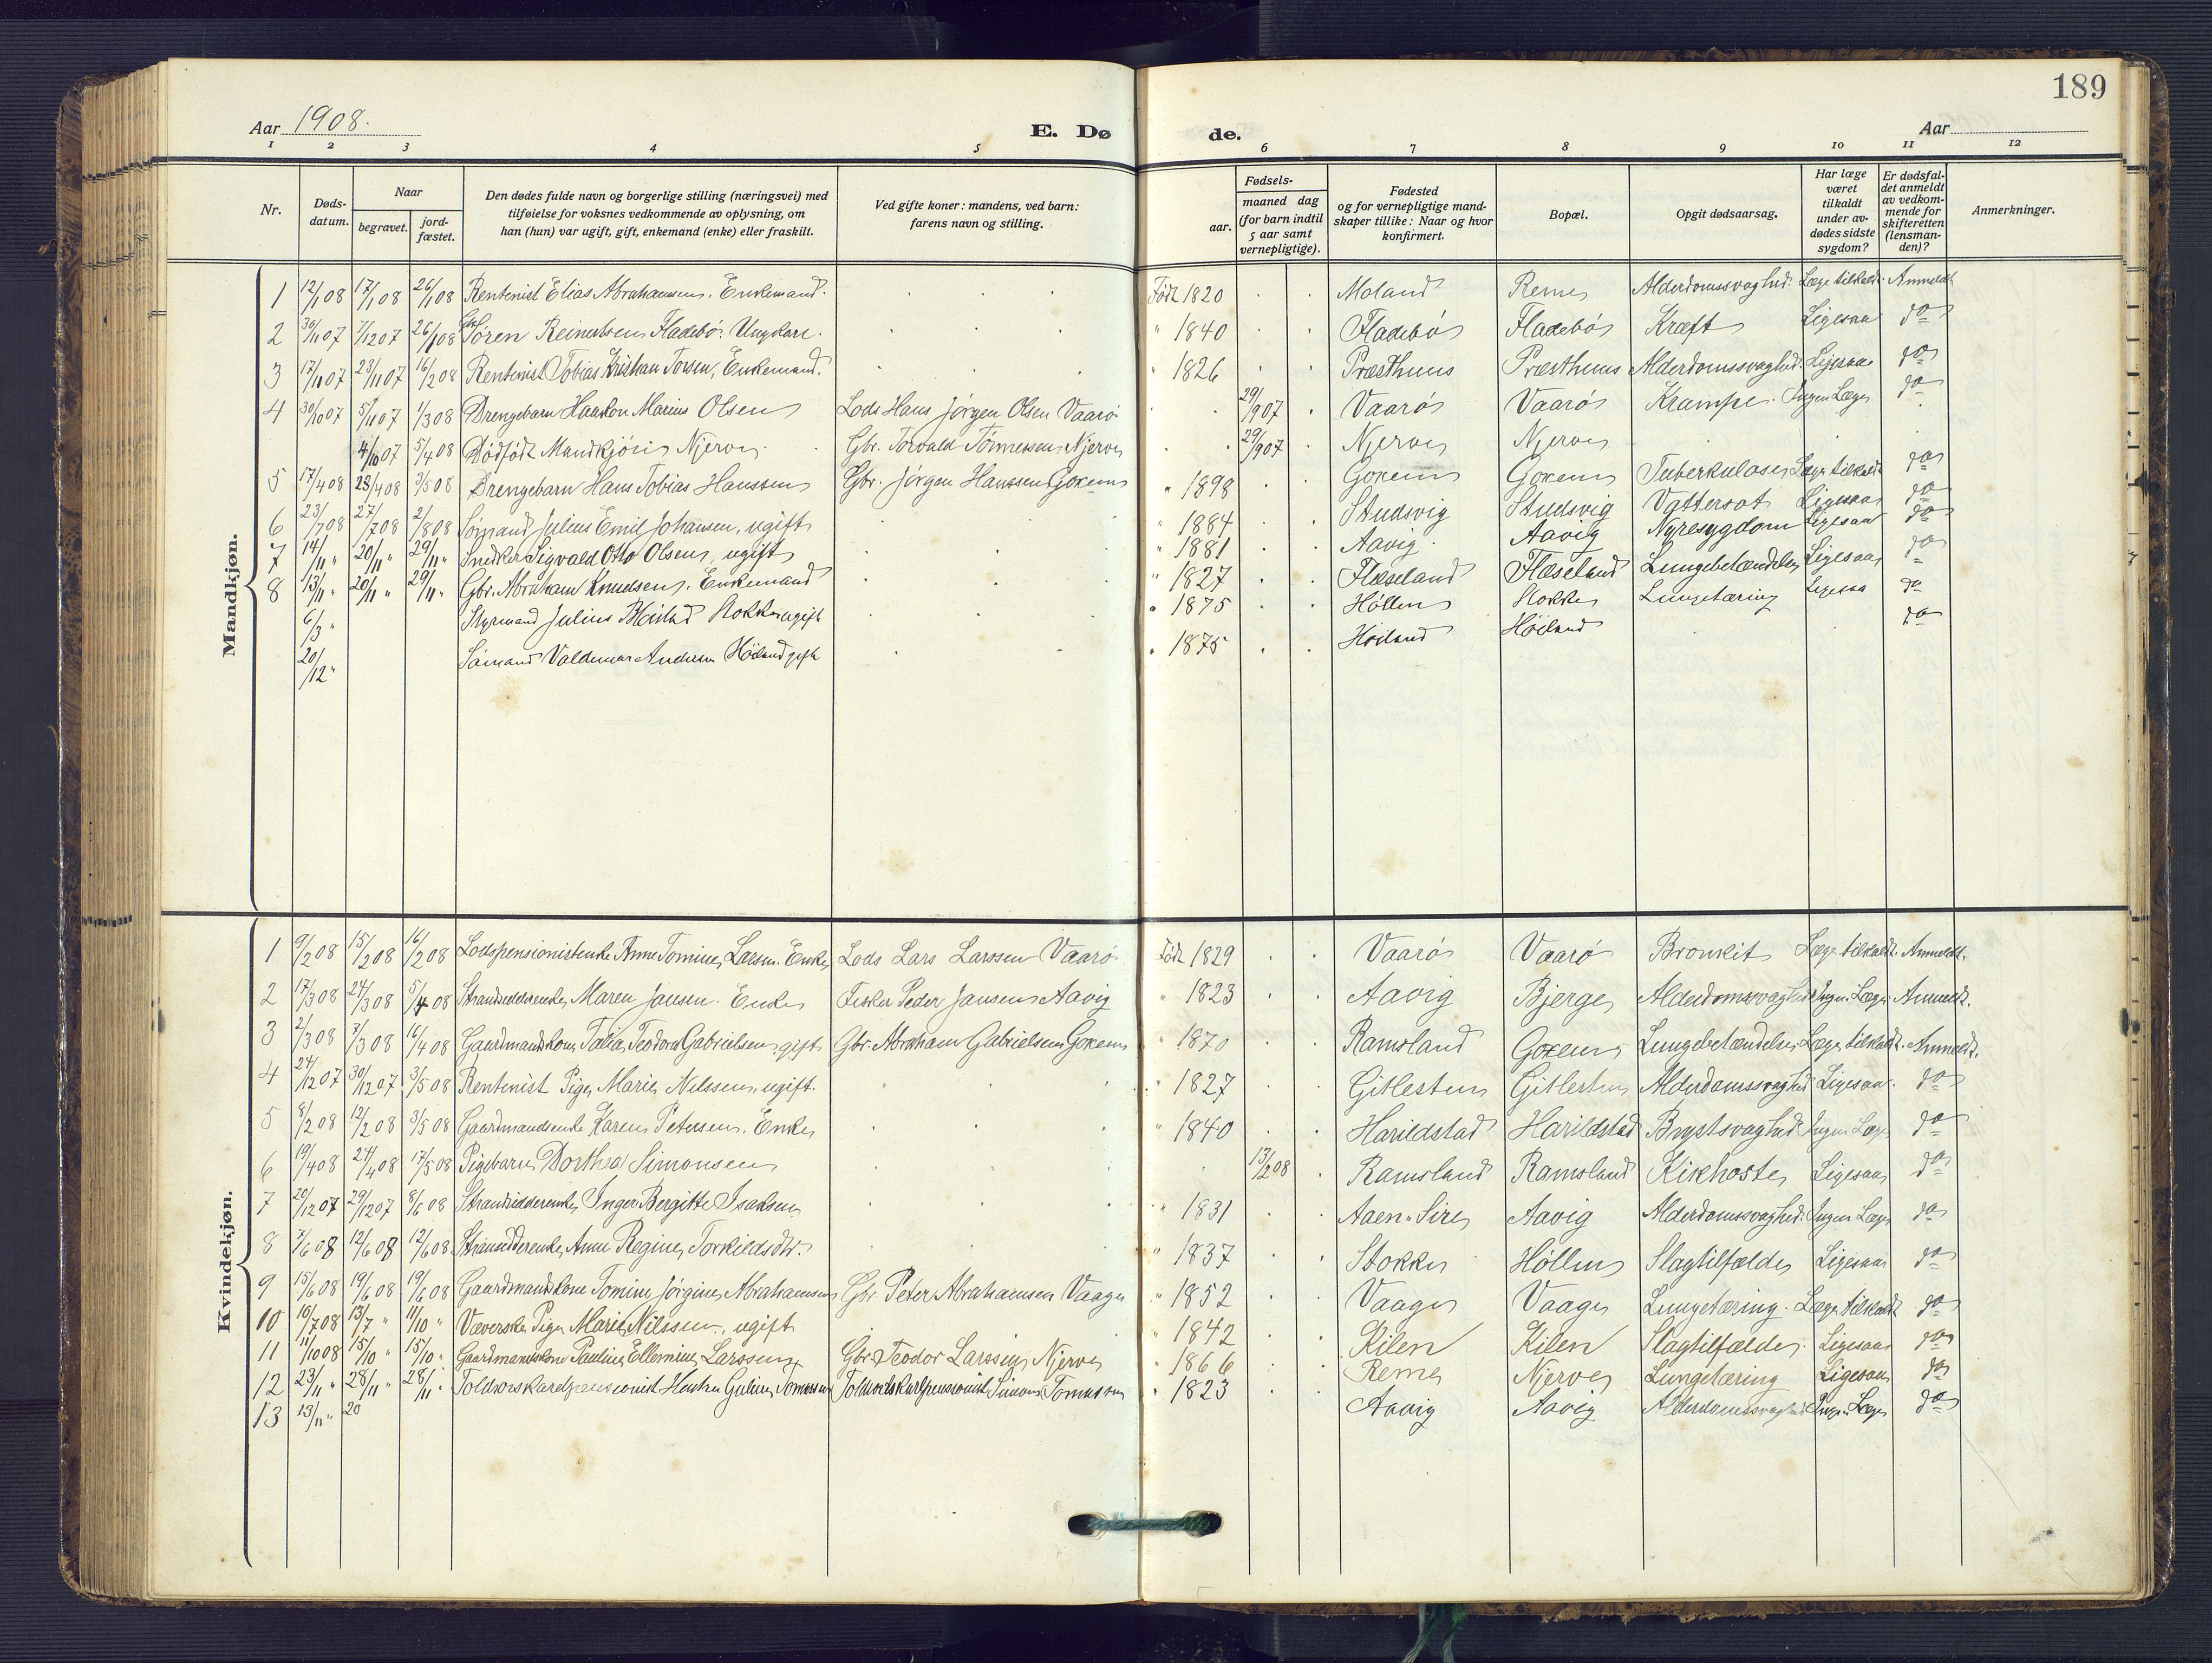 189
Aar 1908. E. Dø de. Aar
1 2 3 4 5 6 7 8 9 10 11 12
Nr. Døds-datum. Naar begravet. jord-fæstet. Den dødes fulde navn og borgerlige stilling (næringsvei) med tilføielse for voksnes vedkommende av oplysning, om han (hun) var ugift, gift, enkemand (enke) eller fraskilt. Ved gifte koner: mandens, ved barn: farens navn og stilling. Fødsels- aar. maaned dag (for barn indtil 5 aar samt vernepligtige). Fødested og for vernepligtige mandskaper tillike: Naar og hvor konfirmert. Bopæl. Opgit dødsaarsag. Har læge været tilkaldt under av-dødes sidste sygdom? Er dødsfal-det anmeldt av vedkom-mende for skifteretten (lensman-den)? Anmerkninger.
Mandkjøn.
1 12/1 08 17/1 08 26/1 08 Rentenist Elias Abrahamsen. Enkemand. Født 1820 Moland Reme Alderdomssvaghed. Læge tilkaldt. Anmeldt
2 30/11 07 7/12 07 26/1 08 Gbr. Søren Reinertsen Fladebö. Ungkarl. " 1840 Fladebö Fladebö Kræft Ligesaa do
3 17/11 07 23/11 07 16/2 08 Rentenist Tobias Kristian Torsen, Enkemand. " 1826 Præsthuus Præsthuus Alderdomssvaghed. Ligesaa do
4 30/10 07 5/11 07 1/3 08 Drengebarn Haakon Marius Olsen Lods Hans Jørgen Olsen Vaarö 29/9 07 Vaarö Vaarö Krampe. Ingen Læge do
4/10 07 5/4 08 Dødfødt Mandkjön Njerve. Gbr. Torvald Tönnessen Njerve 29/9 07 Njerve Njerve
5 17/4 08 23/4 08 3/5 08 Drengebarn Hans Tobias Hanssen Gbr. Jörgen Hanssen Goxem " 1898 Goxem Goxem Tuberkulose Læge tilkaldt do
6 23/7 08 27/7 08 2/8 08 Sömand Julius Emil Johansen, ugift " 1884 Studsvig Studsvig Vattersot Ligesaa do
7 14/11 " 20/11 " 29/11 " Snedker Sigvald Otto Olsen, ugift " 1881 Aavig Aavig Nyresygdom Ligesaa do
8 13/11 " 20/11 " 29/11 " Gbr. Abraham Knudsen. Enkemand " 1827 Flæseland Flæseland Lungebetændelse Ligesaa do
6/3 " Styrmand Julius Stokke ugift " 1875 Höllen Stokke Lungetæring Ligesaa do
20/12 " Sömand Valdemar Andersen Höiland gift " 1875 Höiland Höiland do
Kvindekjøn.
1 9/2 08 15/2 08 16/2 08 Lodspensionistenke Anne Tomine Larsen. Enke Lods Lars Larssen Vaarö Født 1829 Vaarö Vaarö Bronkit Læge tilkaldt. Anmeldt.
2 17/3 08 24/3 08 5/4 08 Strandsidderenke Maren Jansen. Enke Fisker Peder Jansen Aavig " 1823 Aavig Bjerge Alderdomssvaghed Ingen Læge Anmeldt.
3 2/3 08 7/3 08 16/4 08 Gaardmandskone Talia Teodora Gabrielsen, gift Gbr. Abraham Gabrielsen Goxem " 1870 Ramsland Goxem Lungebetændelse Læge tilkaldt. Anmeldt.
4 24/12 07 30/12 07 3/5 08 Rentenist Pige Marie Nilssen, ugift. " 1827 Gitlesten Gitlesten Alderdomssvaghed Ligesaa. do
5 8/2 08 12/2 08 3/5 08 Gaardmandsenke Karen Petersen. Enke " 1840 Harildstad Harildstad Brystsvaghed Ingen Læge do
6 19/4 08 24/4 08 17/5 08 Pigebarn Dorthea Simonsen 13/2 08 Ramsland Ramsland Kikhoste Ligesaa do
7 20/12 07 29/12 07 8/6 08 Strandsidderenke Inger Bergitte Isaksen " 1831 Aaen-Sire Aavig Alderdomssvaghed. Ingen Læge do
8 7/6 08 12/6 08 12/6 08 Strandsidderenke Anne Regine Torkildsdtr. " 1837 Stokke Höllen Slagtilfælde Ligesaa do
9 15/6 08 19/6 08 19/6 08 Gaardmandskone Tomine Jörgine Abrahamsen Gbr. Peter Abrahamsen Vaage " 1852 Vaage Vaage Lungetæring. Læge tilkaldt do
10 10/7 08 13/7 " 11/10 " Væverske Pige Marie Nilssen, ugift " 1842 Kilen Kilen Slagtilfælde. Ligesaa do
11 11/10 08 15/10 " 15/10 " Gaardmandskone Pauline Ellemine Larssen Gbr. Teodor Larssen Njerve " 1866 Reme Njerve Lungetæring Ligesaa do
12 23/11 " 28/11 " 28/11 " Toldvorskarlpensionist Guline Tomassen Toldvorskarlpensionist Simon Tomassen " 1823 Aavig Aavig Alderdomssvaghed Ingen Læge do
13 13/11 " 20